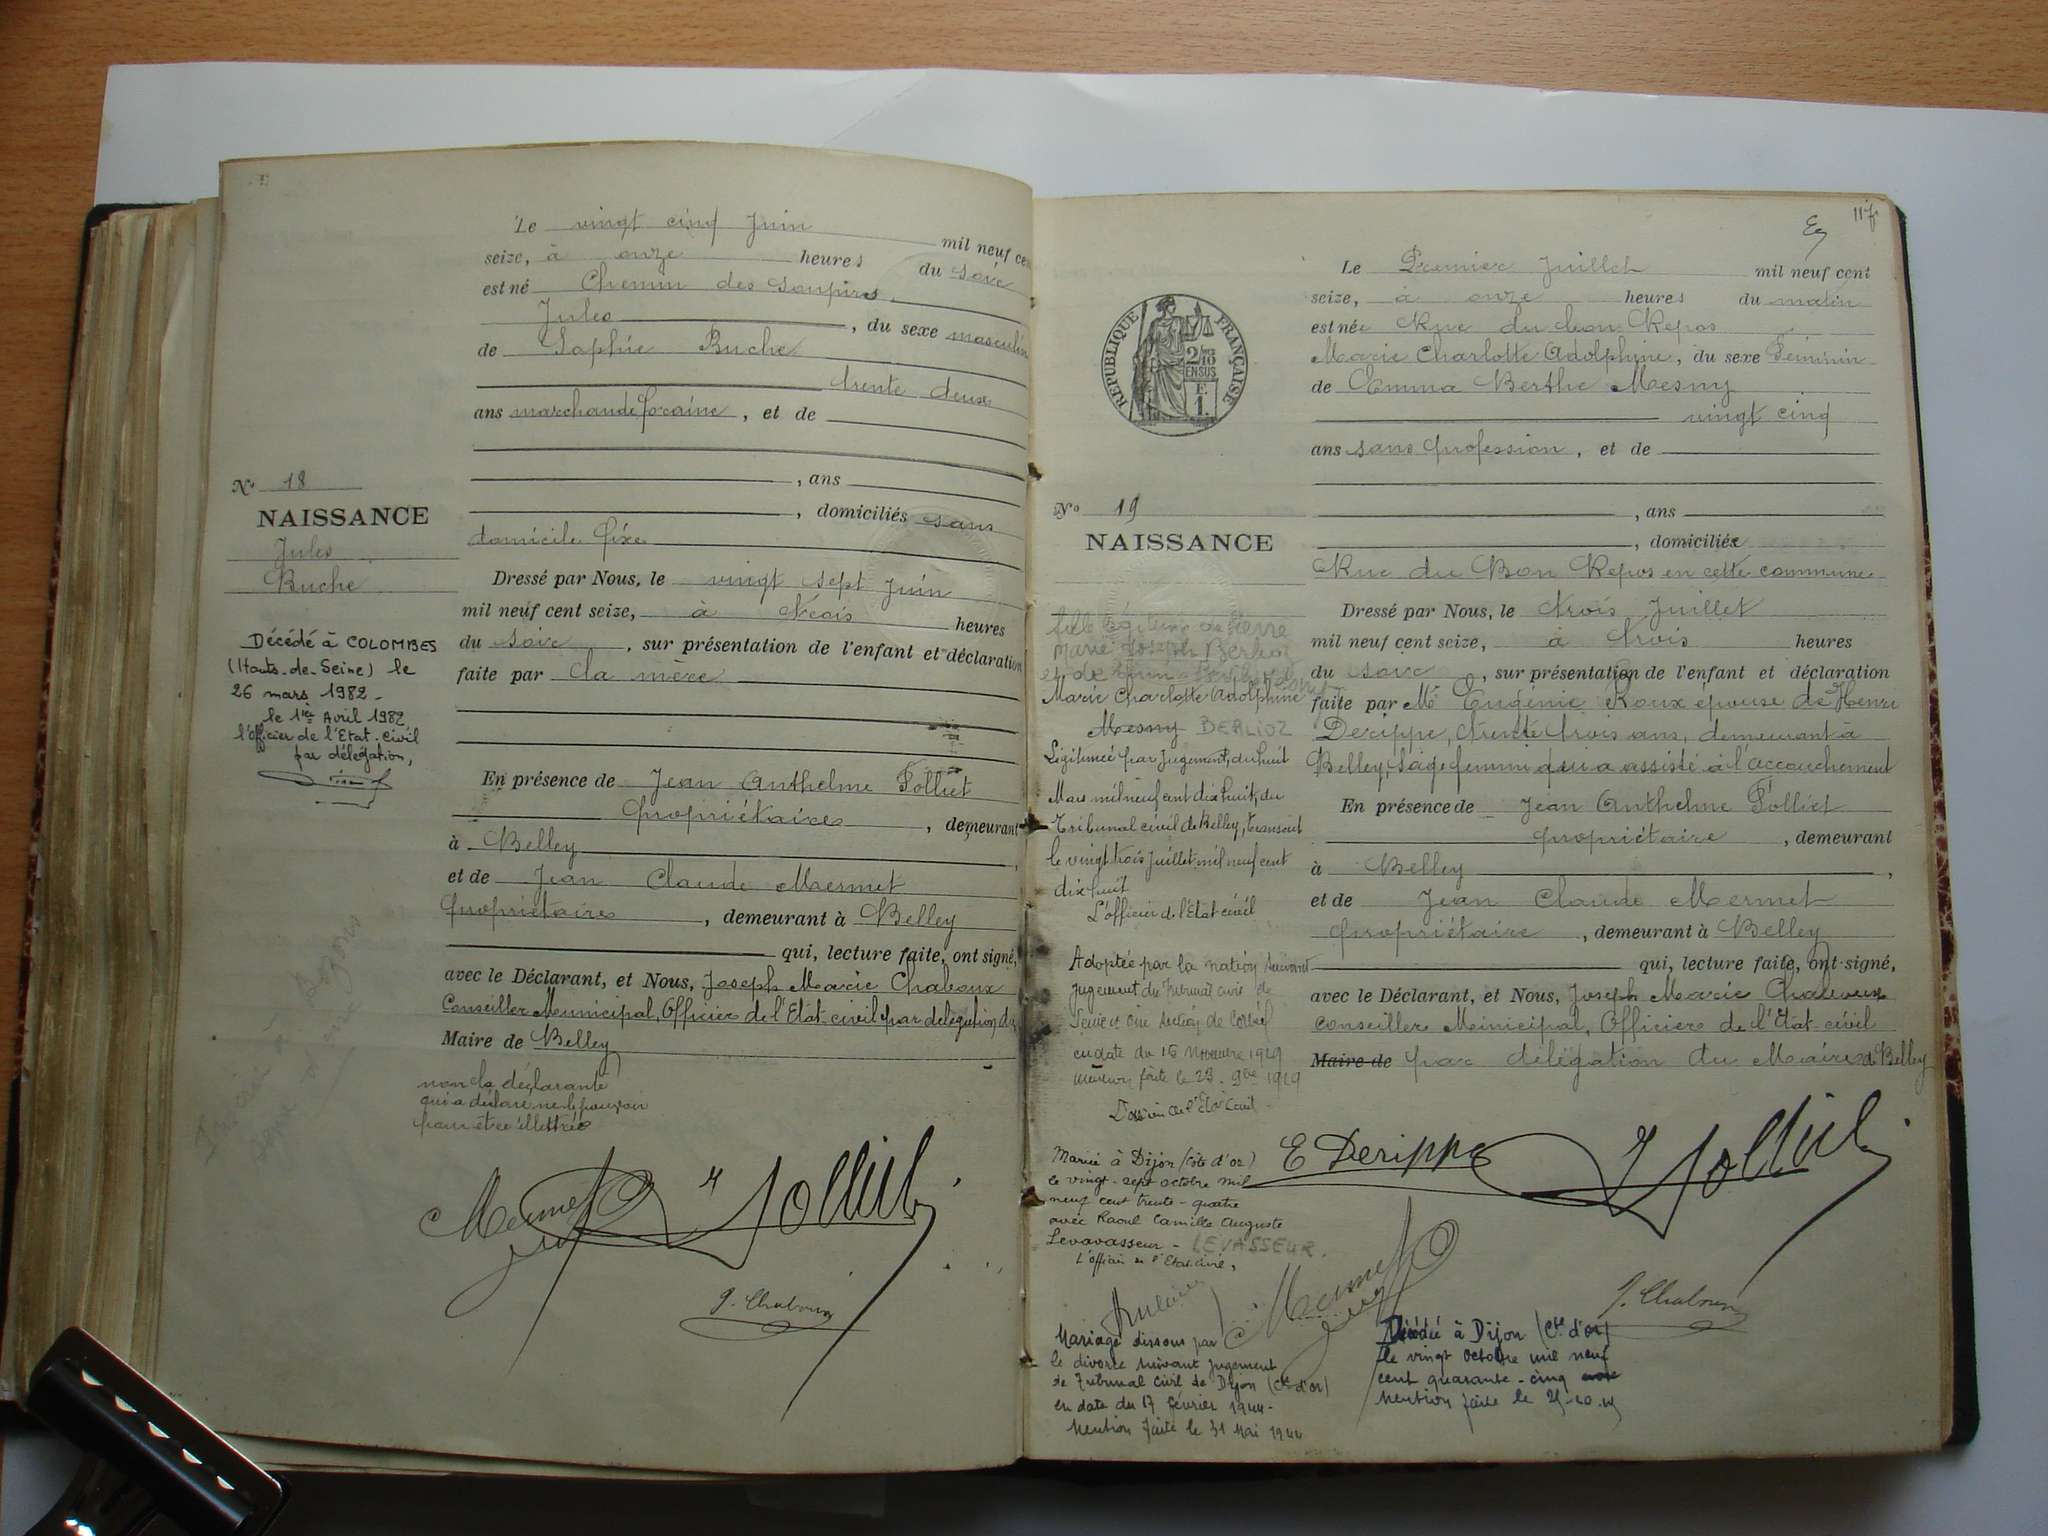 Le vingt cinq Juin mil neuf cen
seize, à onze heures du soir
est né Chemin des soupirs
Jules, du sexe masculin
de Sophie Buche
trente deux
ans marchande foraine, et de
, ans
, domiciliés sans
domicile fixe
Dressé par Nous, le vingt sept Juin
mil neuf cent seize, à trois heures
du soir, sur présentation de l'enfant et déclaration
faite par la mère
En présence de Jean Anthelme Folliet
propriétaire, demeurant
à Belley,
et de Jean Claude Mermet
propriétaire, demeurant à Belley
qui, lecture faite, ont signé,
avec le Déclarant, et Nous, Joseph Marie Chaboux
Conseiller Municipal, Officier de l'Etat-civil par délégation du
Maire de Belley
non la déclarante
qui a déclaré ne le pouvoir
pour être illettrée
Mermet Folliet
J. Chaboux
N° 18
NAISSANCE
Jules
Buche
Décédé à COLOMBES
(Hauts-de-Seine) le
26 mars 1982 -
le 1er Avril 1982
l'officier de l'Etat-civil
par délégation,
117
Le Premier Juillet mil neuf cent
seize, à onze heures du matin
est née Rue du bon Repos
Marie Charlotte Adolphine, du sexe Féminin
de Emma Berthe Mesmy
vingt cinq
ans sans profession, et de
, ans
, domiciliée
Rue du Bon Repos en cette commune
Dressé par Nous, le trois Juillet
mil neuf cent seize, à trois heures
du soir, sur présentation de l'enfant et déclaration
faite par Me Eugénie Roux épouse de Henri
Derippe, trente trois ans, demeurant à
Belley, sage femme qui a assisté à l'accouchement
En présence de Jean Anthelme Folliet
propriétaire, demeurant
à Belley,
et de Jean Claude Mermet
propriétaire, demeurant à Belley
qui, lecture faite, ont signé,
avec le Déclarant, et Nous, Joseph Marie Chaboux
Conseiller Municipal, Officier de l'Etat-civil
Maire de par délégation du Maire de Belley
E Derippe Folliet
Mermet
J. Chaboux
RÉPUBLIQUE FRANÇAISE
N° 19
NAISSANCE
fille légitime de Pierre
Marie Joseph Berlioz
Marie Charlotte Adolphine
Mesmy BERLIOZ
Légitimée par Jugement, du huit
Mars mil neuf cent dix huit, du
Tribunal civil de Belley, transcrit
le vingt trois Juillet mil neuf cent
dix huit
L'officier de l'Etat civil
Adoptée par la nation suivant
jugement du Tribunal civil de
en date du 16 Novembre 1929
mention faite le 23. 9bre 1929
L'officier de l'Etat Civil
Mariée à Dijon (Côte d'or)
le vingt-sept octobre mil
neuf cent trente-quatre
avec Raoul Camille Auguste
Levavasseur - LEVASSEUR.
L'officier de l'Etat-Civil,
Mariage dissous par
le divorce suivant jugement
de Tribunal Civil de Dijon (Cte d'or)
en date du 17 février 1944-
Mention faite le 31 Mai 1944
Décédée à Dijon (Cte d'or)
le vingt octobre mil neuf
cent quarante-cinq
Mention faite le